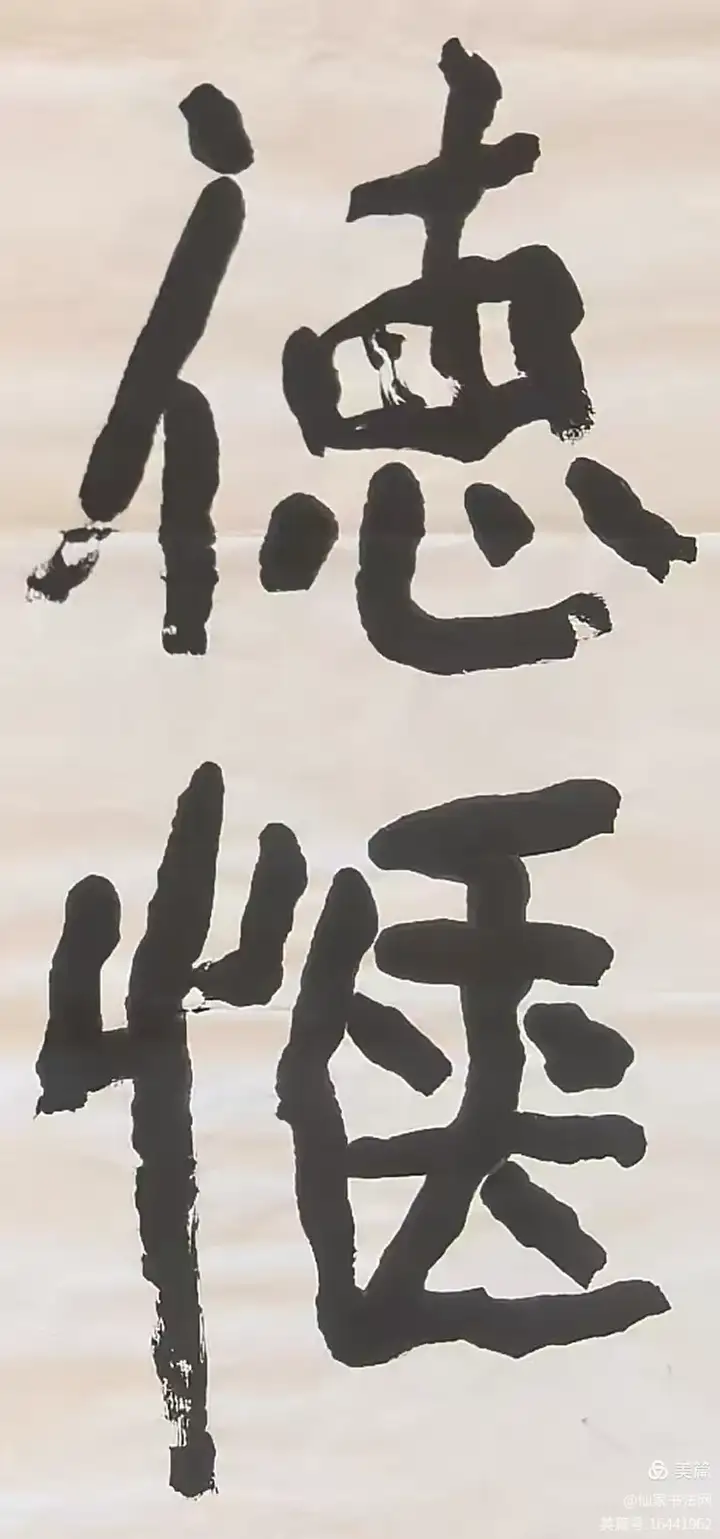 德惬
美篇
@仙家书法网
美篇号:16441962